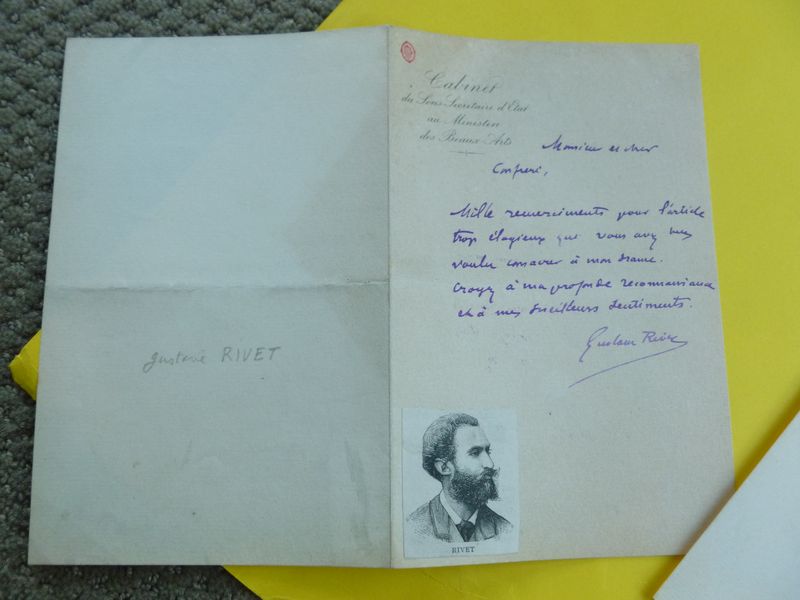 Cabinet
du Sous-Secrétaire d'Etat
au Ministère
des Beaux-Arts
Monsieur et cher
Confrère,
Mille remerciments pour l'article
trop élogieux que vous avez bien
voulu consacrer à mon drame.
Croyez à ma profonde reconnaissance
et à mes meilleurs sentiments.
Gustave Rivet
gustave RIVET
RIVET